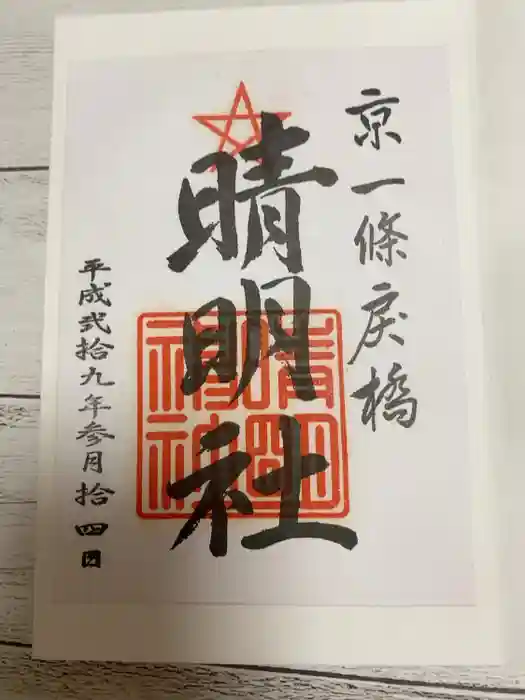 京一條戻橋
晴明社
晴明神社
平成弐拾九年参月拾四日